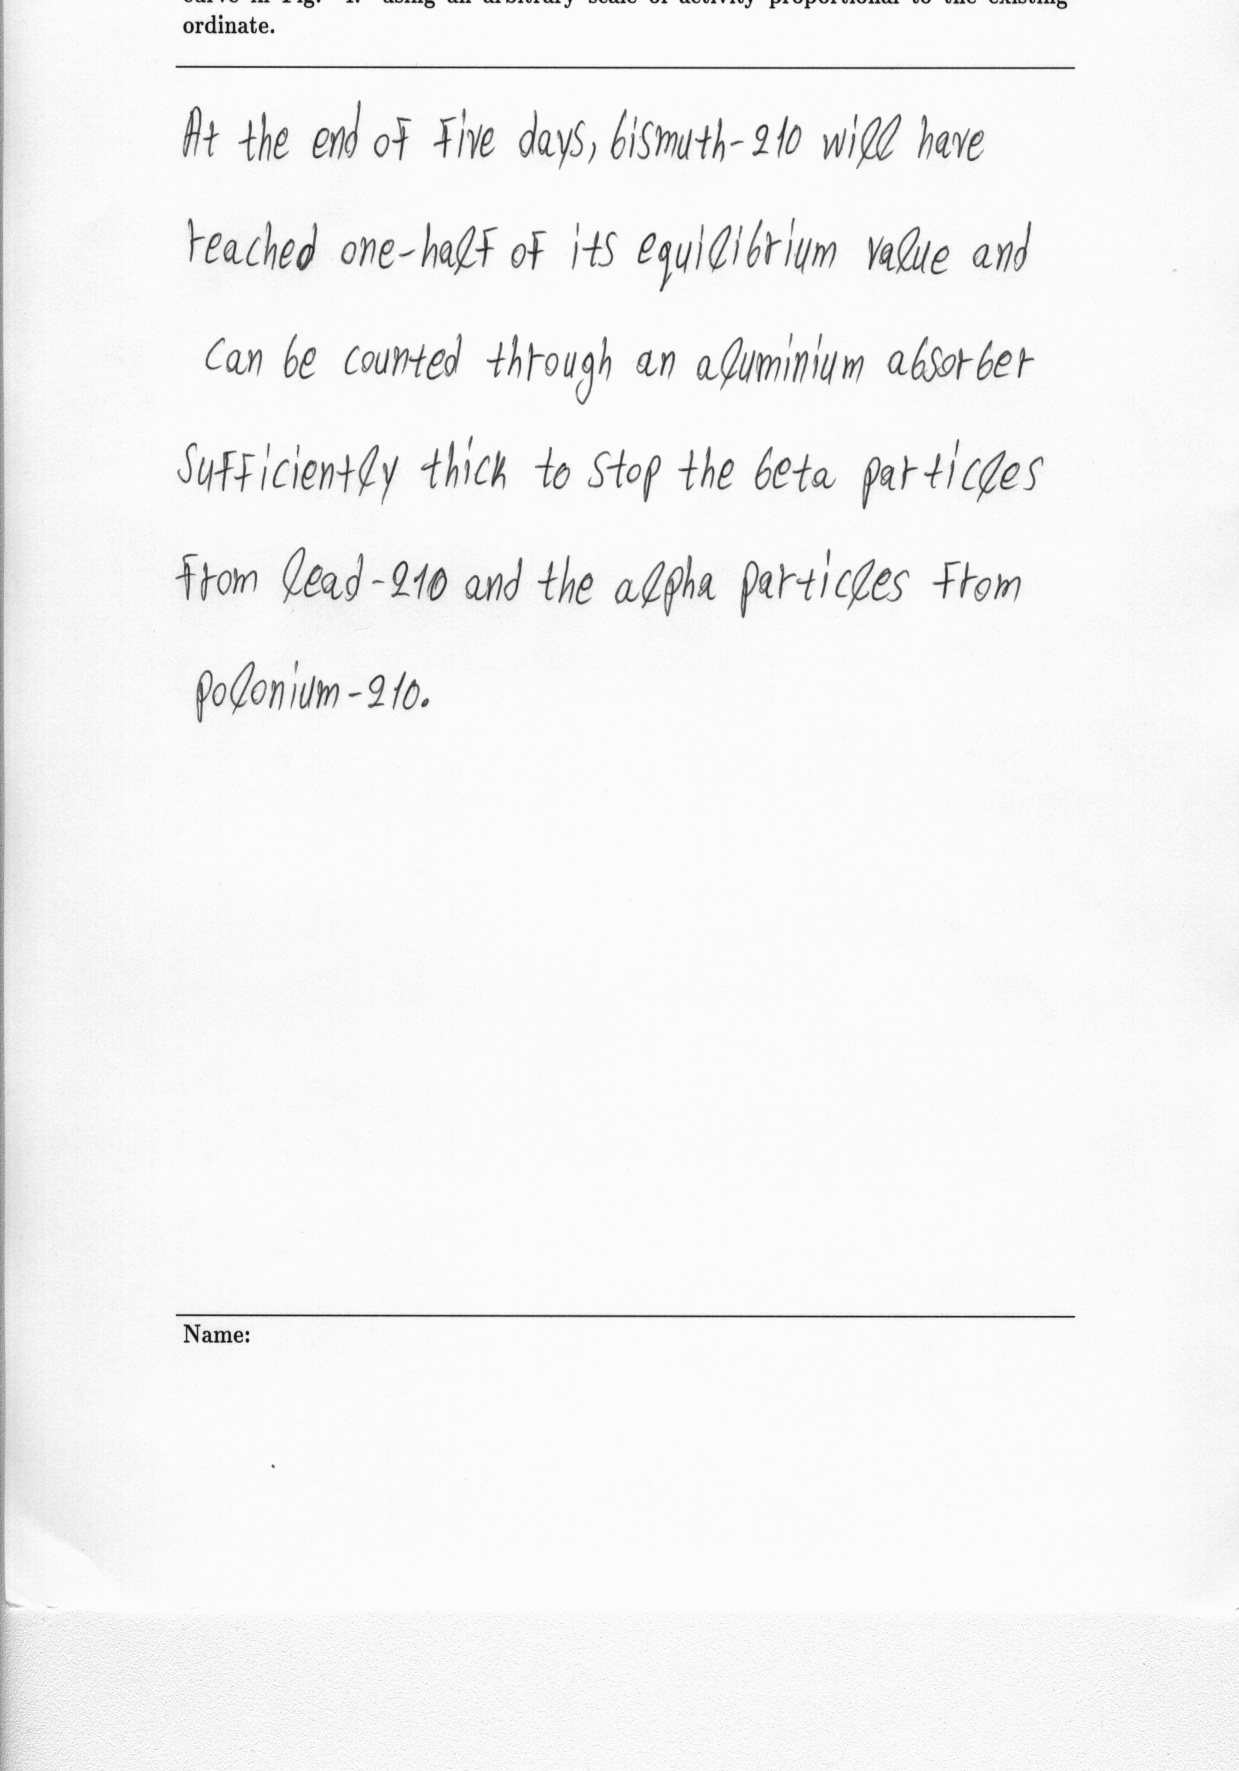 curve in Fig. 4. using an arbitrary scale of activity proportional to the existing
ordinate.
At the end of five days, bismuth-210 will have
reached one-half of its equilibrium value and
can be counted through an aluminium absorber
sufficiently thick to stop the beta particles
from lead-210 and the alpha particles from
polonium-210.
Name: